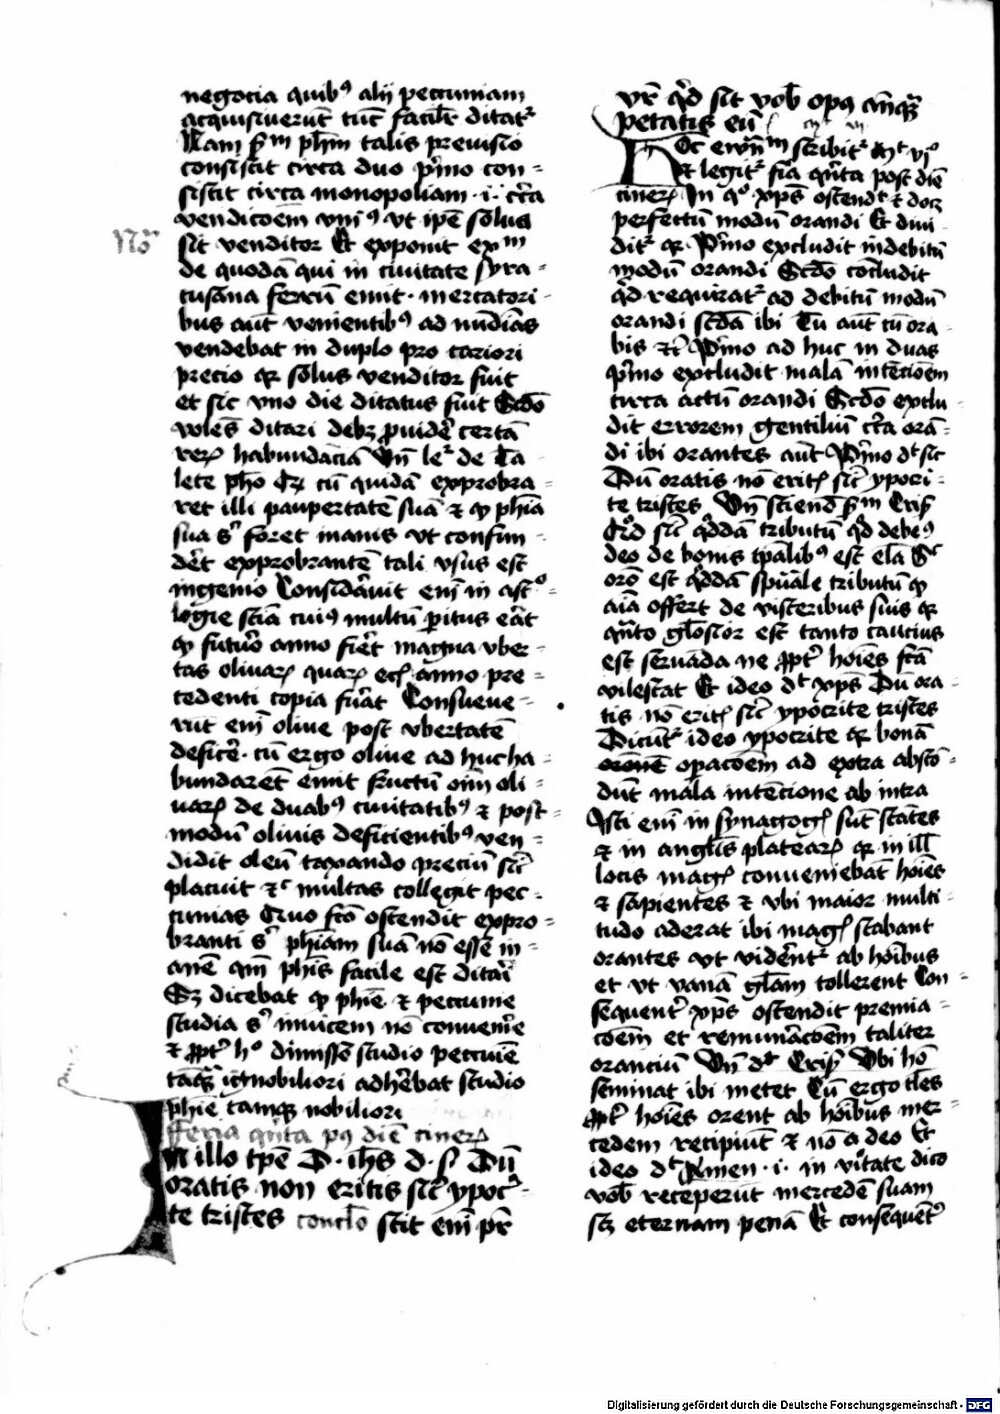 negocia quibꝰ alij peccuniam
acquisiuerūt tūc facilr̄ ditatᷣ
Nam ẜm ph̄m talis preuisio
consistit circa duo pͥmo con-
sistit circa monopoliam · i · cͥca
vendicōem vniꝰ vt ip̄e solus
Noᷓ
sit venditor Et exponit exm
de quodā qui in ciuitate syra-
cusana ferrū emit · mercatori-
bus aūt venientibꝰ ad nūdinas
vendebat in duplo pro cariori
precio qꝛ solus venditor fuit
et sic vno die ditatus fuit Scd̄o
volēs ditari debꝫ ꝓuidē certā
reꝝ habundāciā Vn̄ leᷣ de Ta-
lete ph̄o Qꝫ cū quidā exprobra-
ret illi paupertatē suā ⁊ ꝙ ph̄ia
sua sᷣ foret inanis vt confun-
dēt exprobrantē tali vsus est
ingenio Considāuit em̄ in astͦ-
logie sciā cuiꝰ multū ꝑitus eāt
ꝙ futuro anno fiēt magna vber-
tas oliuaꝝ quaꝝ eciā anno pre-
cedenti copia fuāt Consueue-
rūt em̄ oliue post vbertatē
deficē · cū ergo oliue ad huc ha-
bundarēt emit fructū om̄ oli-
uaꝝ de duabꝰ ciuitatibꝰ ⁊ post-
modū oliuis deficientibꝰ ven-
didit oleū taxando preciū sic̄
placuit ⁊c multas collegit pec-
cunias Quo fc̄o ostendit expro-
branti sᷣ ph̄iam suā nō esse in-
anē qm̄ ph̄is facile est ditāi
Sꝫ dicebat ꝙ ph̄ie ⁊ peccunie
studia sᷣ inuicem nō conuenīe
⁊ ꝓptᷣ hͦ dimisso studio peccuīe
tāqᷓ ignobiliori adhēbat studio
ph̄ie tamqᷓ nobiliori
fferia qͥnta pꝰ diē cineꝝ
N illo tp̄e D · ih̄s d · s · Dū
oratis non eritis sic̄ ypocͥ-
te tristes conclō scit em̄ pr̄
vr̄ qd̄ sit vob̄ opꝰ anqᷓ
petatis eū
Hoc ewn̄m scribitᷣ Mt vjͦ
Et legitᷣ fīa qͥnta post diē
cineꝝ In qͦ xp̄s ostendt ⁊ docꝫ
perfectū modū orandi Et diui-
ditᷣ qꝛ Pͥmo excludit indebitū
modū orandi Scd̄o concludit
qd̄ requiratᷣ ad debitū modū
orandi scd̄a ibi Tu aūt cū ora-
bis ⁊c̄ Pͥmo ad huc in duas
pͥmo excludit malā intēcioēm
circa actū orandi Scd̄o exclu-
dit errorem gentiliū cͥca orā-
di ibi orantes aūt Pͥmo dt sic
Dū oratis nō eritꝭ sic̄ ypocri-
te tristes Vn̄ sciend̄ ẜm Crisͦ
Qd̄ sic̄ qͦddā tributū qd̄ debeꝰ
deo de bonis tp̄alibꝰ est elā Sic
orō est qͦddā spūale tributū ꝙ
aīa offert de visceribus suis qꝛ
qͣnto glōsior est tanto caucius
est seruāda ne ꝓptᷣ hoīes fc̄ā
vilescat Et ideo dt xp̄s Dū ora-
tis nō eritꝭ sic̄ ypocrite tristes
Dicūtᷣ ideo ypocrite qꝛ bonā
oronē operacōem ad extra abscō-
dūt mala intēcione ab intra
Isti em̄ in synagogꝭ sūt stātes
⁊ in angl̄is plateaꝝ qꝛ in ill̄
locis magꝭ conueniebāt hoīes
⁊ sapientes ⁊ vbi maior multi-
tudo aderat ibi magꝭ stabant
orantes vt vidēntᷣ ab hoībus
et vt vanā glām tollerent Con-
sequentᷣ xp̄s ostendit premia-
cōem et remunāacōem taliter
oranciū Vn̄ dt Crisͦ Vbi hō
seminat ibi metet Cū ergo tl̄es
ꝓptᷣ hoīes orent ab hoībus mer-
cedem recipiūt ⁊ nō a deo Et
ideo dt Amen · i · in vͥtate dico
vob̄ receperūt mercedē suam
scꝫ eternam penā Et consequentᷣ
Digitalisierung gefördert durch die Deutsche Forschungsgemeinschaft - DFG